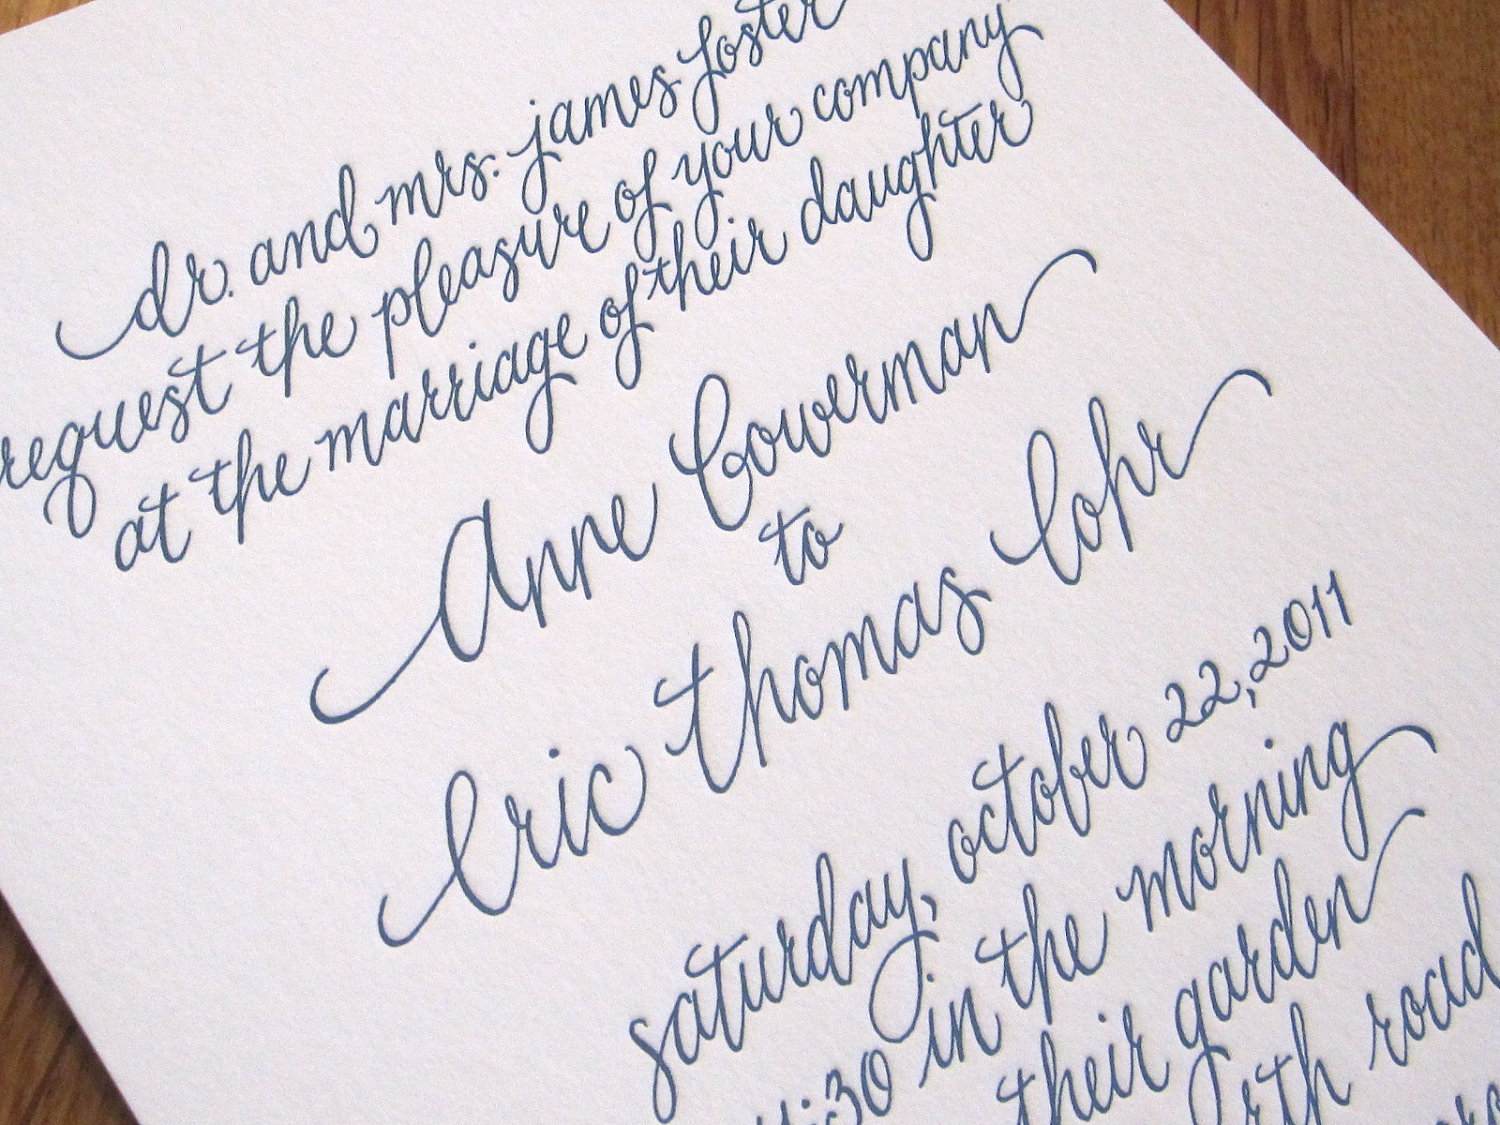 dr. and mrs. james foster
request the pleasure of your company
at the marriage of their daughter
Anne Cowerman
to
Eric Thomas Lohr
saturday, october 22, 2011
:30 in the morning
their garden
rth road